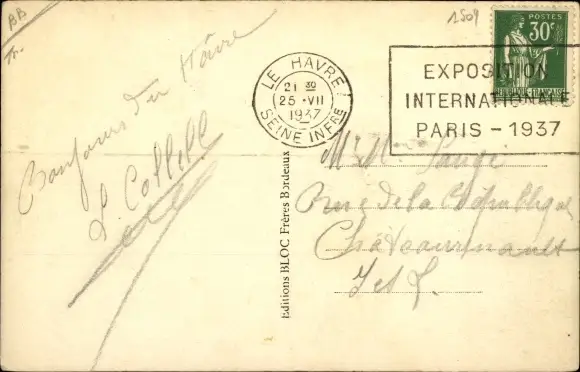 BB
Tr.
1509
POSTES
30c
RÉPUBLIQUE FRANÇAISE
LE HAVRE
21 30
25 - VII
1937
SEINE INFRE
EXPOSITION
INTERNATIONALE
PARIS - 1937
Bonjour du Hâvre
L. Collell
Editions BLOC Frères Bordeaux
Mr Mme
Rue de la République
Châteaurenault
I et L.